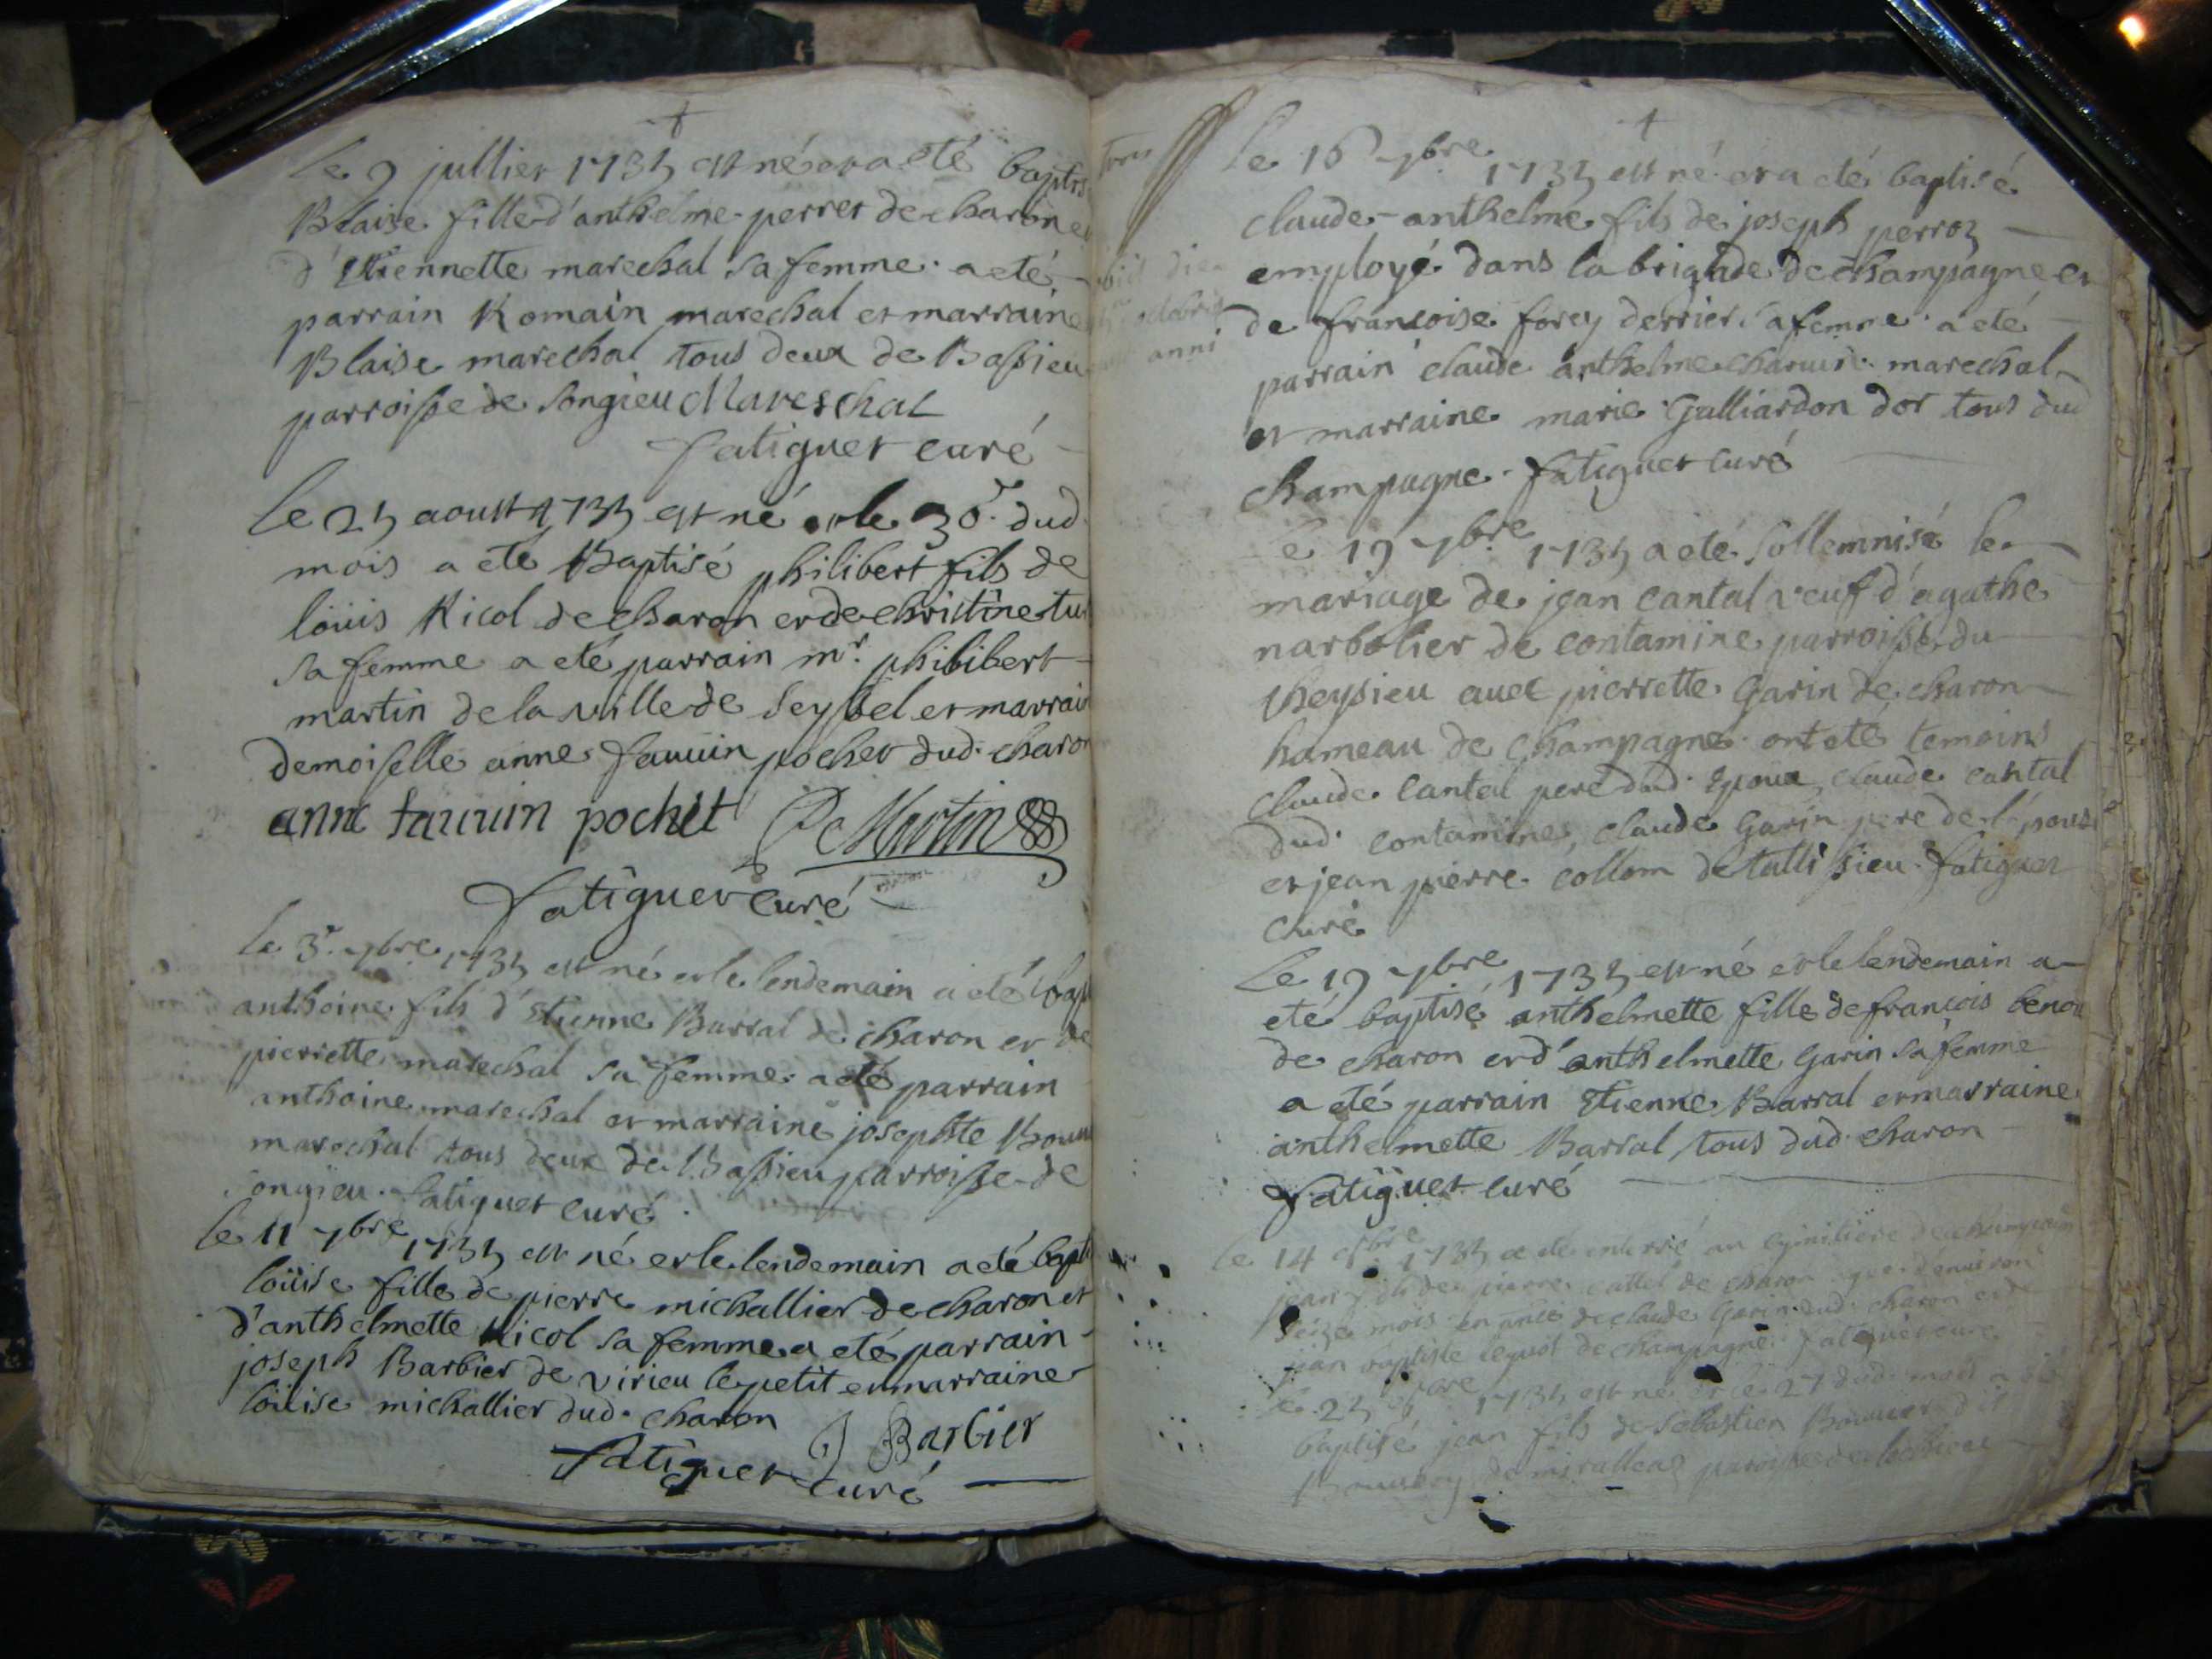 le 9 jullier 1735 est né et a eté baptis
Blaise fille d'anthelme perret de charon et
d'Etiennette marechal sa femme. a eté
parrain Romain marechal et marraine
Blaise marechal tous deux de Bassieu
parroisse de Songieu Mareschal
fatiguet curé
le 25 aoust 1735 est né et le 30e. dud.
mois a ete Baptisé philibert fils de
loüis Nicol de charon et de christine
sa femme a eté parrain mr. philibert
martin de la ville de Seyssel et marrain
demoiselle anne fauuin pochet dud. charon
anne fauuin pochet P Martin
fatiguet curé
le 3e. 7bre 1735 est né et le lendemain a eté bapt
anthoine fils d'Etienne Barral de charon et de
pierrette marechal sa femme. a eté parrain
anthoine marechal et marraine josephte
marechal tous deux de Bassieu parroisse de
songieu. fatiguet curé.
le 11 7bre 1735 est né et le lendemain a eté bapt
loüise fille de pierre michallier de charon et
d'anthelmette Nicol sa femme a eté parrain
joseph Barbier de virieu le petit et marraine
loüise michallier dud. charon
J Barbier
fatiguet curé
le 16 7bre 1735 est né et a eté baptisé
claude-anthelme fils de joseph perroz
employé dans la brigade de champagne et
de francoise forey derrier sa femme. a eté
parrain claude anthelme charuin marechal
et marraine marie Galliardon dor tous dud
champagne. fatiguet curé
obiit die
octobris
anni
le 19 7bre 1735 a eté sollemnisé le
mariage de jean cantal veuf d'agathe
narbolier de contamine parroisse du
cheysieu auec pierrette Garin de charon
hameau de champagne. ont eté temoins
claude cantal pere dud. Epoux, claude cantal
dud. contamine, claude Garin pere de l'épouse
et jean pierre collom de talissieu. fatiguet
curé
le 19 7bre 1735 est né et le lendemain a
eté baptisé anthelmette fille de francois benoi
de charon et d'anthelmette Garin sa femme
a eté parrain Etienne Barral et marraine
anthelmette Barral tous dud. charon
fatiguet curé
le 14 8bre 1735 a eté enterré au cymitiere de champagne
jean fils de pierre cattel de charon agé d'enuiron
seize mois en pnce de claude Garin dud. charon et de
jean baptiste lequot de champagne. fatiguet curé
le 25 8bre 1735 est né et le 27 dud. mois a eté
baptisé jean fils de sebastien Bouuier dit